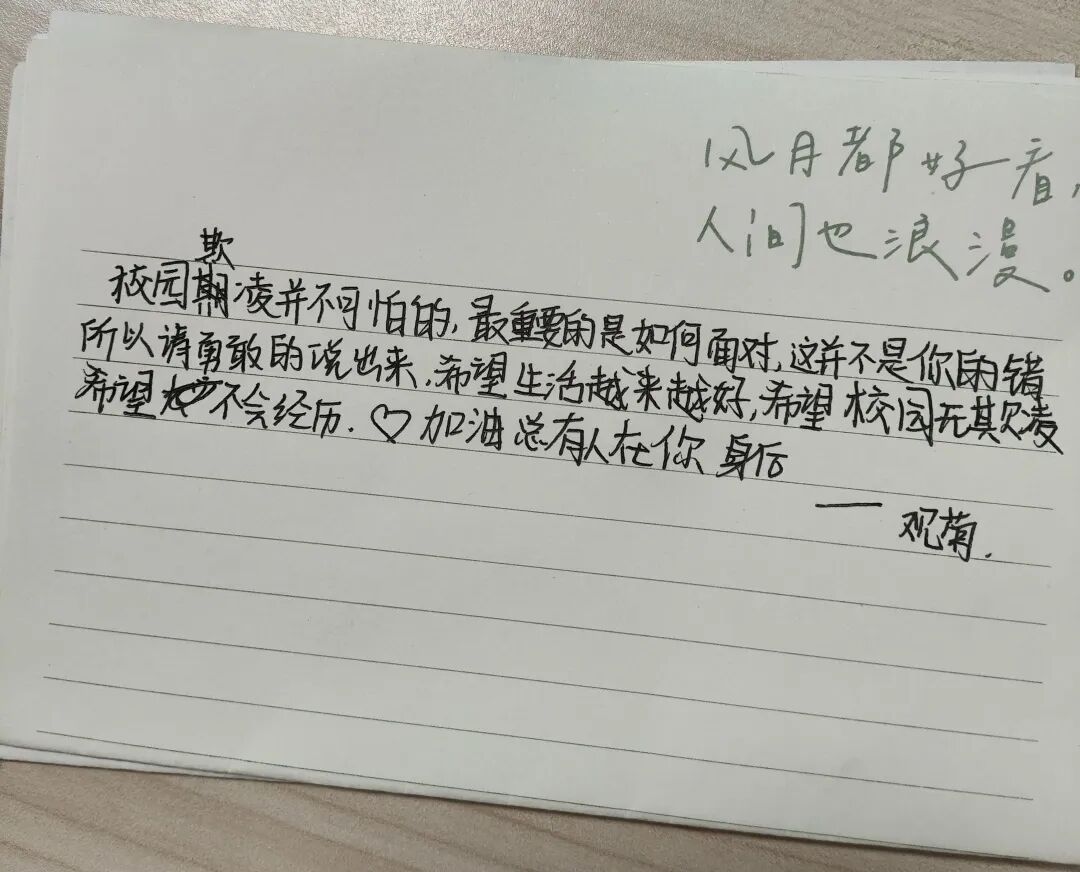 风月都好看,
人间也浪漫。
欺
校园期凌并不可怕的,最重要的是如何面对,这并不是你的错
所以请勇敢的说出来,希望生活越来越好,希望校园无欺凌
希望不会经历.♡加油总有人在你身后
——观菊.